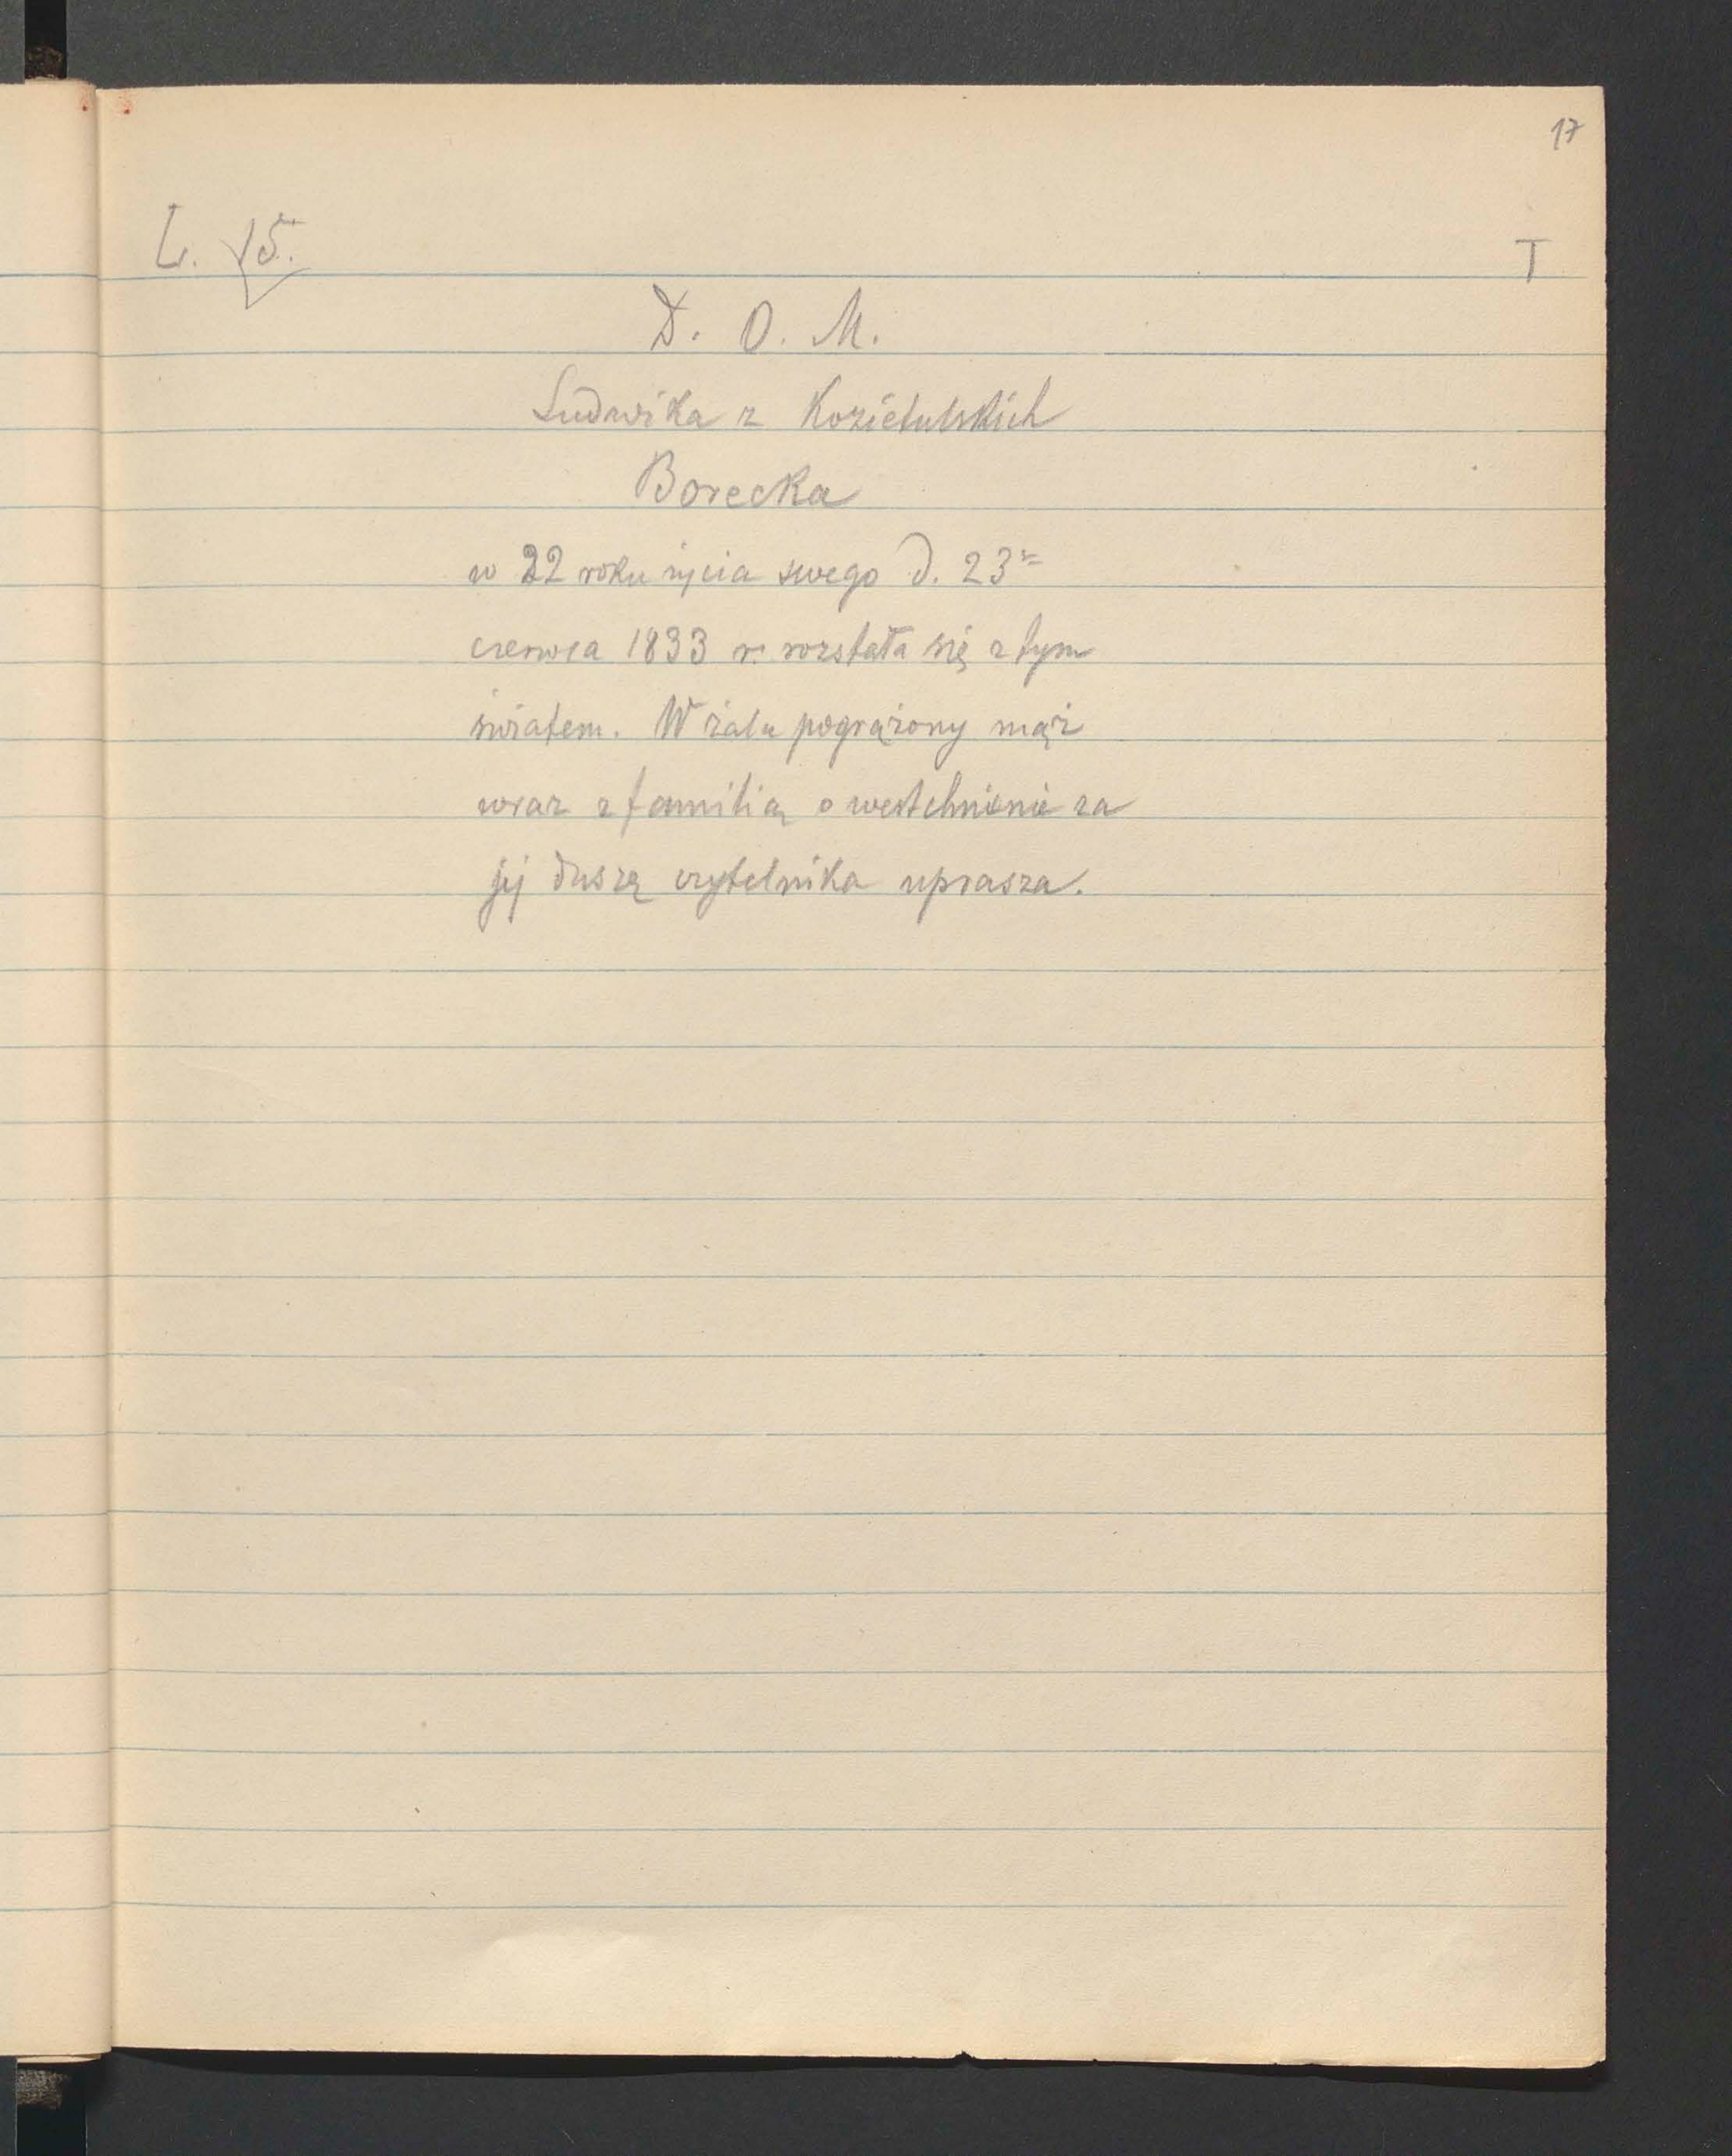 17
L. 15.
T
D. O. M.
Ludwika z Kozietulskich
Borecka
w 22 roku życia swego d. 23
czerwca 1833 r. rozstała się z tym
światem. W żalu pogrążony mąż
wraz z familią o westchnienie za
jej duszę czytelnika uprasza.